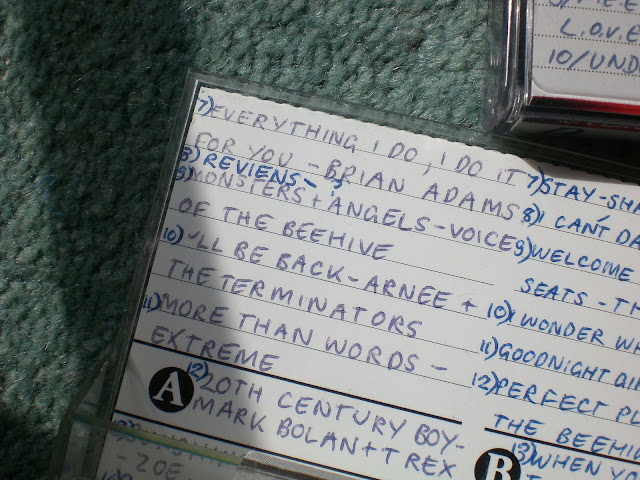 7) EVERYTHING I DO, I DO IT
FOR YOU - BRIAN ADAMS
8) REVIENS - ?
9) MONSTERS + ANGELS - VOICE
OF THE BEEHIVE
10) I'LL BE BACK - ARNEE +
THE TERMINATORS
11) MORE THAN WORDS -
EXTREME
A
12) 20TH CENTURY BOY -
MARK BOLAN + T REX
- ZOE
7) STAY - SHA
8) I CAN'T DA
9) WELCOME
SEATS - TH
10) I WONDER WH
11) GOODNIGHT
12) PERFECT PL
THE BEEHI
B
13) WHEN YO
L.O.V.E
10/UND